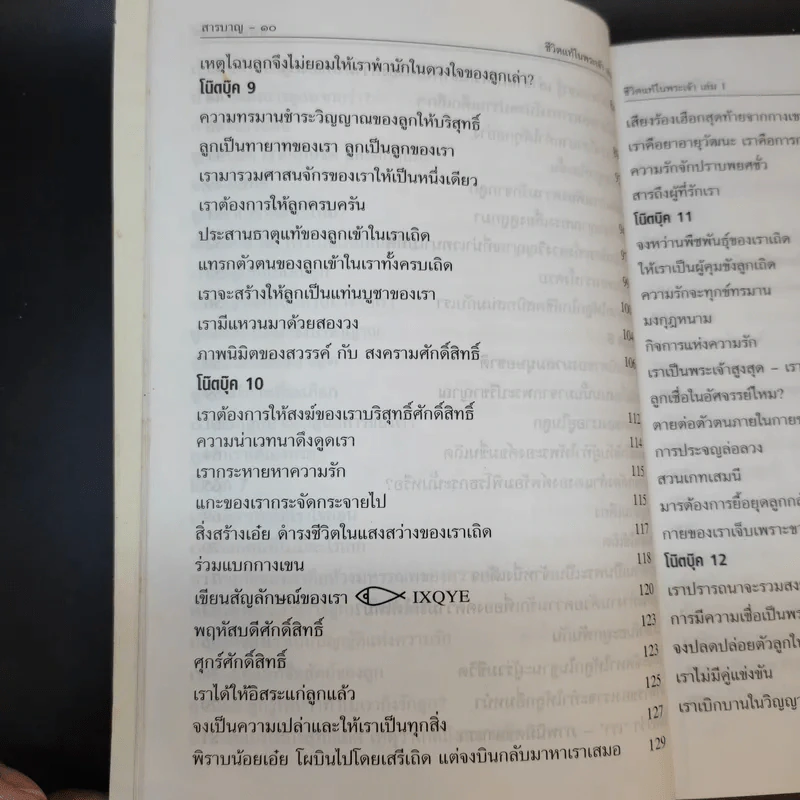 สารบาญ - ๑๐
ชีวิตแท้ในพระเจ้า
เหตุไฉนลูกจึงไม่ยอมให้เราพำนักในดวงใจของลูกเล่า?
โน๊ตบุ๊ค 9
ความทรมานชำระวิญญาณของลูกให้บริสุทธิ์
ลูกเป็นทายาทของเรา ลูกเป็นลูกของเรา
เรามารวมศาสนจักรของเราให้เป็นหนึ่งเดียว
เราต้องการให้ลูกครบครัน
ประสานธาตุแท้ของลูกเข้าในเราเถิด
แทรกตัวตนของลูกเข้าในเราทั้งครบเถิด
เราจะสร้างให้ลูกเป็นแท่นบูชาของเรา
เรามีแหวนมาด้วยสองวง 104
ภาพนิมิตของสวรรค์ กับ สงครามศักดิ์สิทธิ์ 106
โน๊ตบุ๊ค 10
เราต้องการให้สงฆ์ของเราบริสุทธิ์ศักดิ์สิทธิ์ 112
ความน่าเวทนาดึงดูดเรา 114
เรากระหายหาความรัก 115
แกะของเรากระจัดกระจายไป 115
สิ่งสร้างเอ๋ย ดำรงชีวิตในแสงสว่างของเราเถิด 117
ร่วมแบกกางเขน 118
เขียนสัญลักษณ์ของเรา IXQYE 120
พฤหัสบดีศักดิ์สิทธิ์ 123
ศุกร์ศักดิ์สิทธิ์ 123
เราได้ให้อิสระแก่ลูกแล้ว 125
จงเป็นความเปล่าและให้เราเป็นทุกสิ่ง 127
พิราบน้อยเอ๋ย โผบินไปโดยเสรีเถิด แต่จงบินกลับมาหาเราเสมอ 129
ชีวิตแท้ในพระเจ้า เล่ม 1
เสียงร้องเฮือกสุดท้ายจากกางเข
เราคือยาอายุวัฒนะ เราคือการ
ความรักจักปราบพยศชั่ว
สารถึงผู้ที่รักเรา
โน๊ตบุ๊ค 11
จงหว่านพืชพันธุ์ของเราเถิด
ให้เราเป็นผู้คุมขังลูกเถิด
ความรักจะทุกข์ทรมาน
มงกุฎหนาม
กิจการแห่งความรัก
เราเป็นพระเจ้าสูงสุด - เรา
ลูกเชื่อในอัศจรรย์ไหม?
ตายต่อตัวตนภายในกาย
การประจญล่อลวง
สวนเกทเสมนี
มารต้องการยื้อยุดลูก
กายของเราเจ็บเพราะ
โน๊ตบุ๊ค 12
เราปรารถนาจะรวมสง
การมีความเชื่อเป็น
จงปลดปล่อยตัวลูกใ
เราไม่มีคู่แข่งขัน
เราเบิกบานในวิญญา